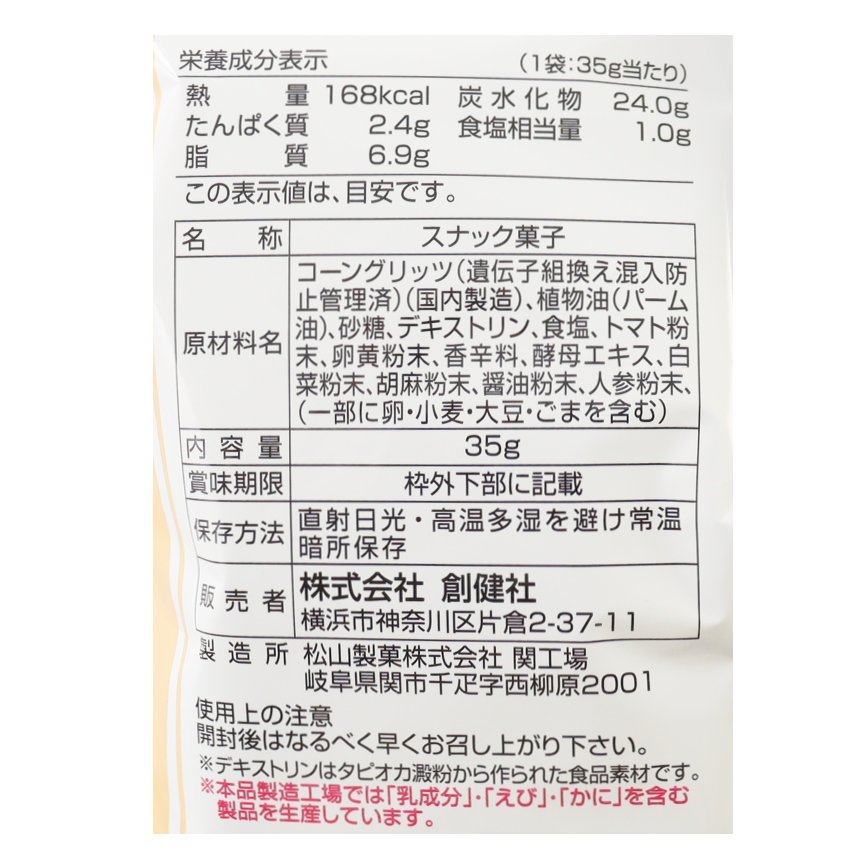 栄養成分表示 (1袋:35g当たり)
熱量 168kcal 炭水化物 24.0g
たんぱく質 2.4g 食塩相当量 1.0g
脂質 6.9g
この表示値は、目安です。
名称 スナック菓子
原材料名 コーングリッツ(遺伝子組換え混入防
止管理済)(国内製造)、植物油(パーム
油)、砂糖、デキストリン、食塩、トマト粉
末、卵黄粉末、香辛料、酵母エキス、白
菜粉末、胡麻粉末、醤油粉末、人参粉末、
(一部に卵・小麦・大豆・ごまを含む)
内容量 35g
賞味期限 枠外下部に記載
保存方法 直射日光・高温多湿を避け常温
暗所保存
販売者 株式会社 創健社
横浜市神奈川区片倉2-37-11
製造所 松山製菓株式会社 関工場
岐阜県関市千疋字西柳原2001
使用上の注意
開封後はなるべく早くお召し上がり下さい。
※デキストリンはタピオカ澱粉から作られた食品素材です。
※本品製造工場では「乳成分」・「えび」・「かに」を含む
製品を生産しています。